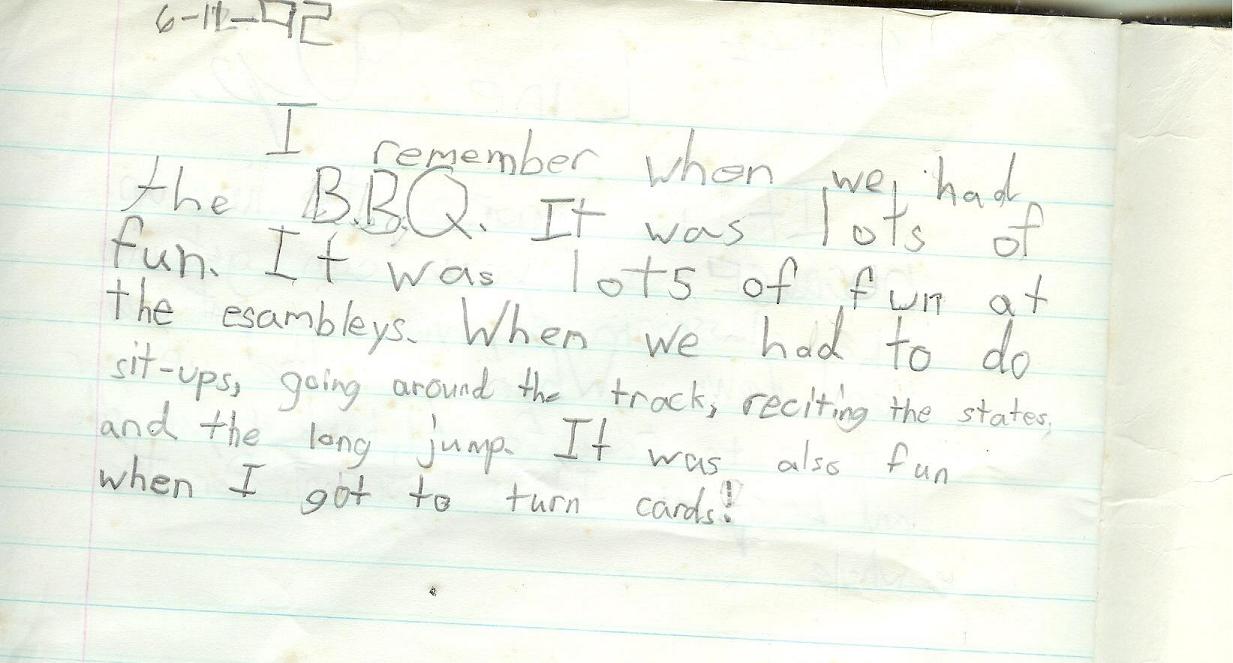 6-11-92
I remember when we had
the B.B.Q. It was lots of
fun. It was lots of fun at
the esambleys. When we had to do
sit-ups, going around the track, reciting the states,
and the long jump. It was also fun
when I got to turn cards!